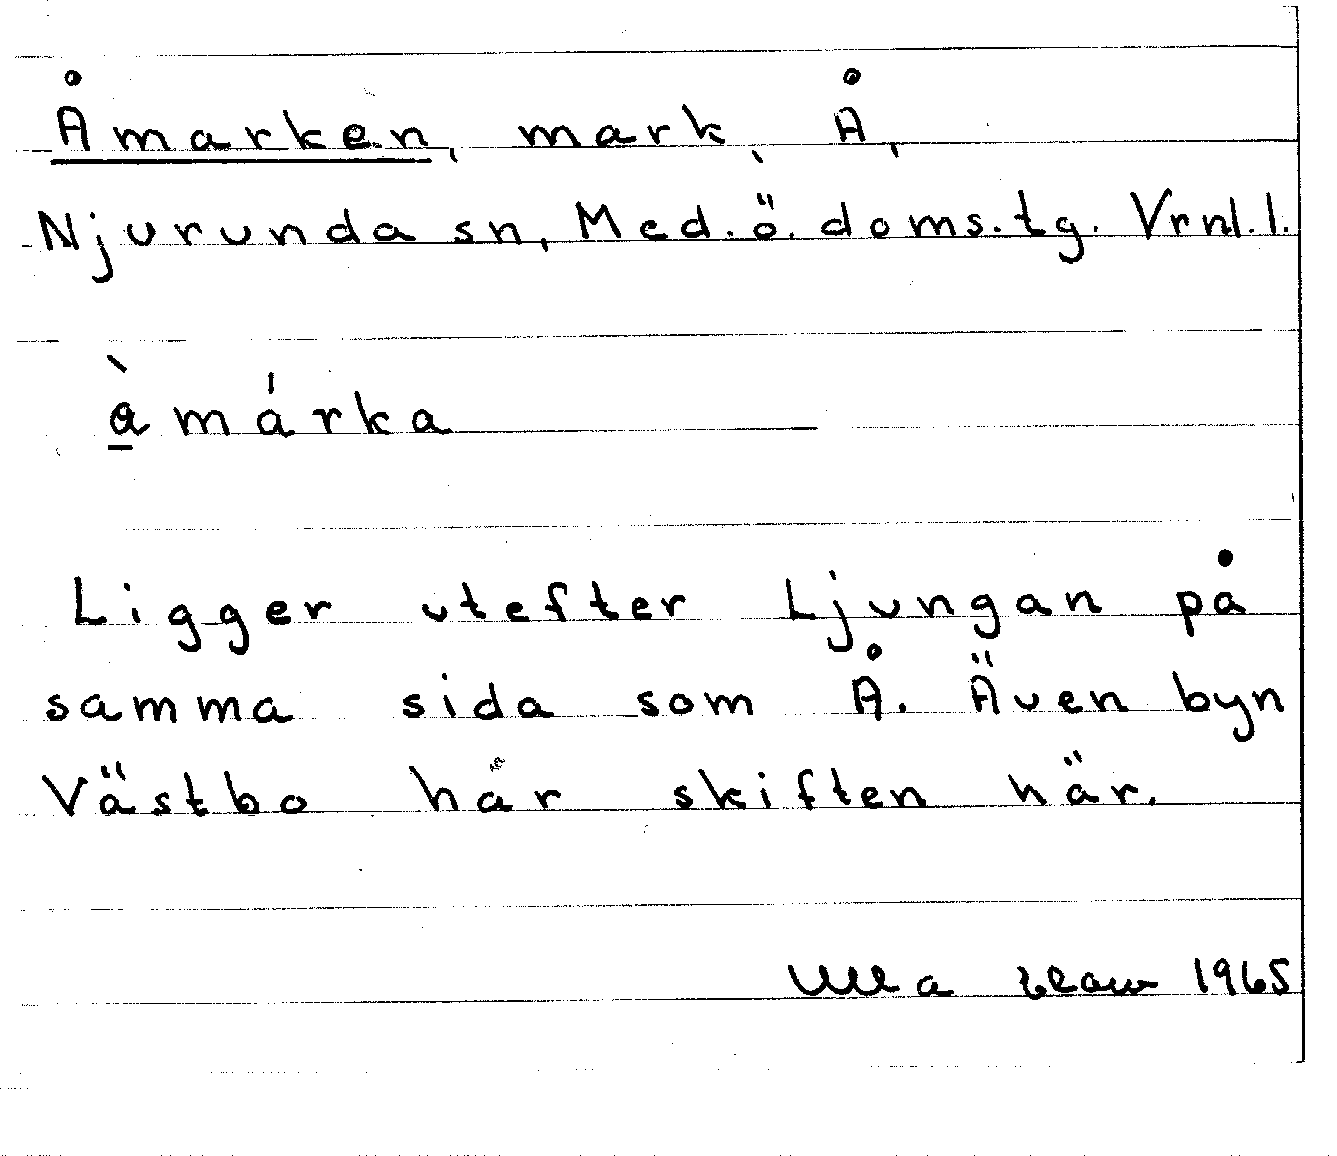 Åmarken, mark, Å,
Njurunda sn, Med. ö. doms.tg. Vrnl.l.
à̱ márka
Ligger utefter Ljungan på
samma sida som Å. Även byn
Västbo har skiften här.
Ulla 1965